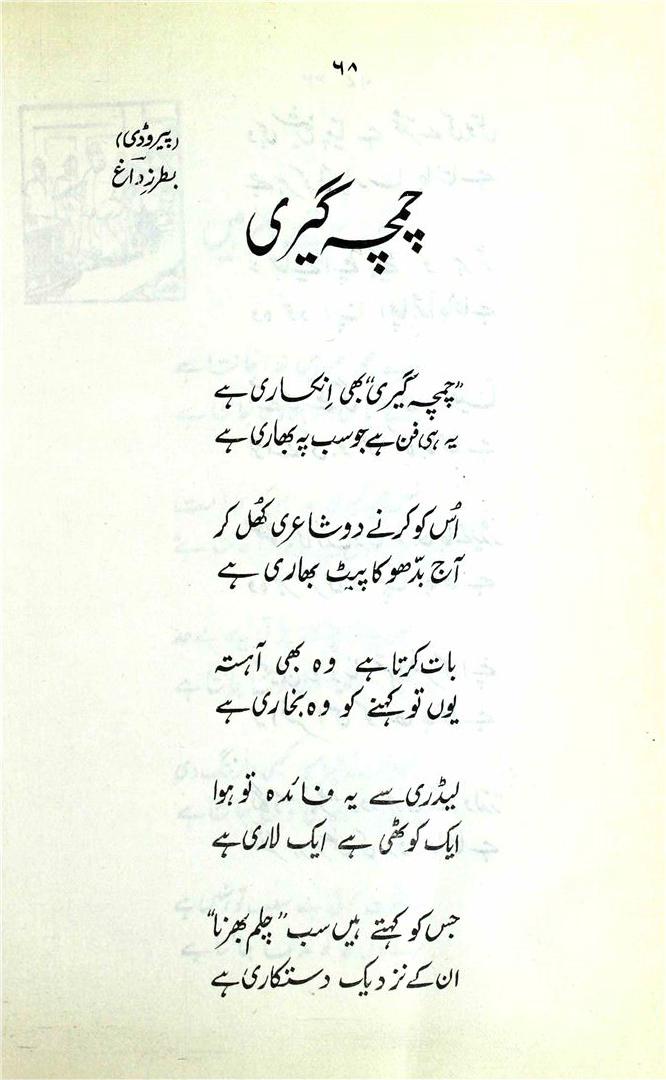 ۶۸
(پیروڈی)
بطرزِ داغ
چمچہ گیری
"چمچہ گیری" بھی اِنکساری ہے
یہ ہی فن ہے جو سب پہ بھاری ہے
اُس کو کرنے دو شاعری کھُل کر
آج بدّھو کا پیٹ بھاری ہے
بات کرتا ہے وہ بھی آہستہ
یوں تو کہنے کو وہ بخاری ہے
لیڈری سے یہ فائدہ تو ہوا
ایک کوٹھی ہے ایک لاری ہے
جس کو کہتے ہیں سب "چلم بھرنا"
ان کے نزدیک دستکاری ہے